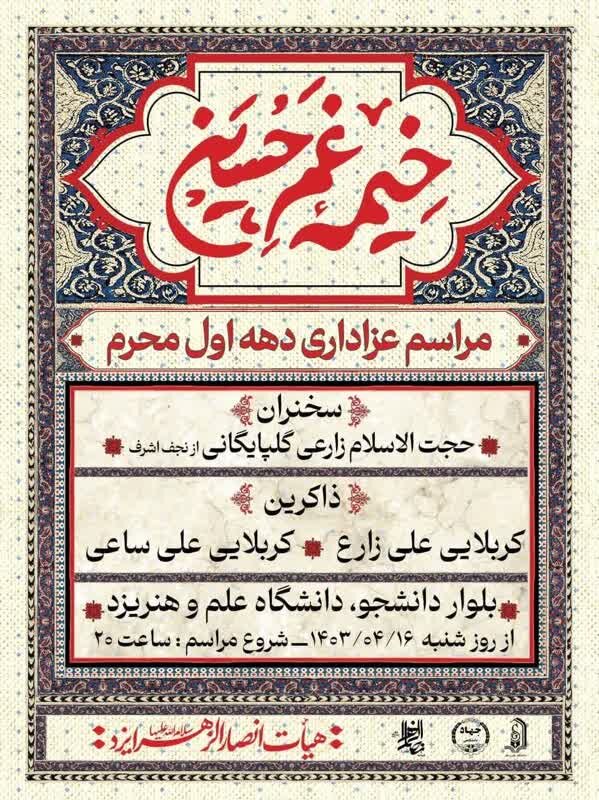 خیمه غم حسین
مراسم عزاداری دهه اول محرم
سخنران
حجت الاسلام زارعی گلپایگانی از نجف اشرف
ذاکرین
کربلایی علی زارع کربلایی علی ساعی
بلوار دانشجو، دانشگاه علم و هنر یزد
از روز شنبه ۱۴۰۳/۰۴/۱۶ ـ شروع مراسم : ساعت ۲۰
هیأت انصار الزهرا سلام الله علیها یزد
جهاد